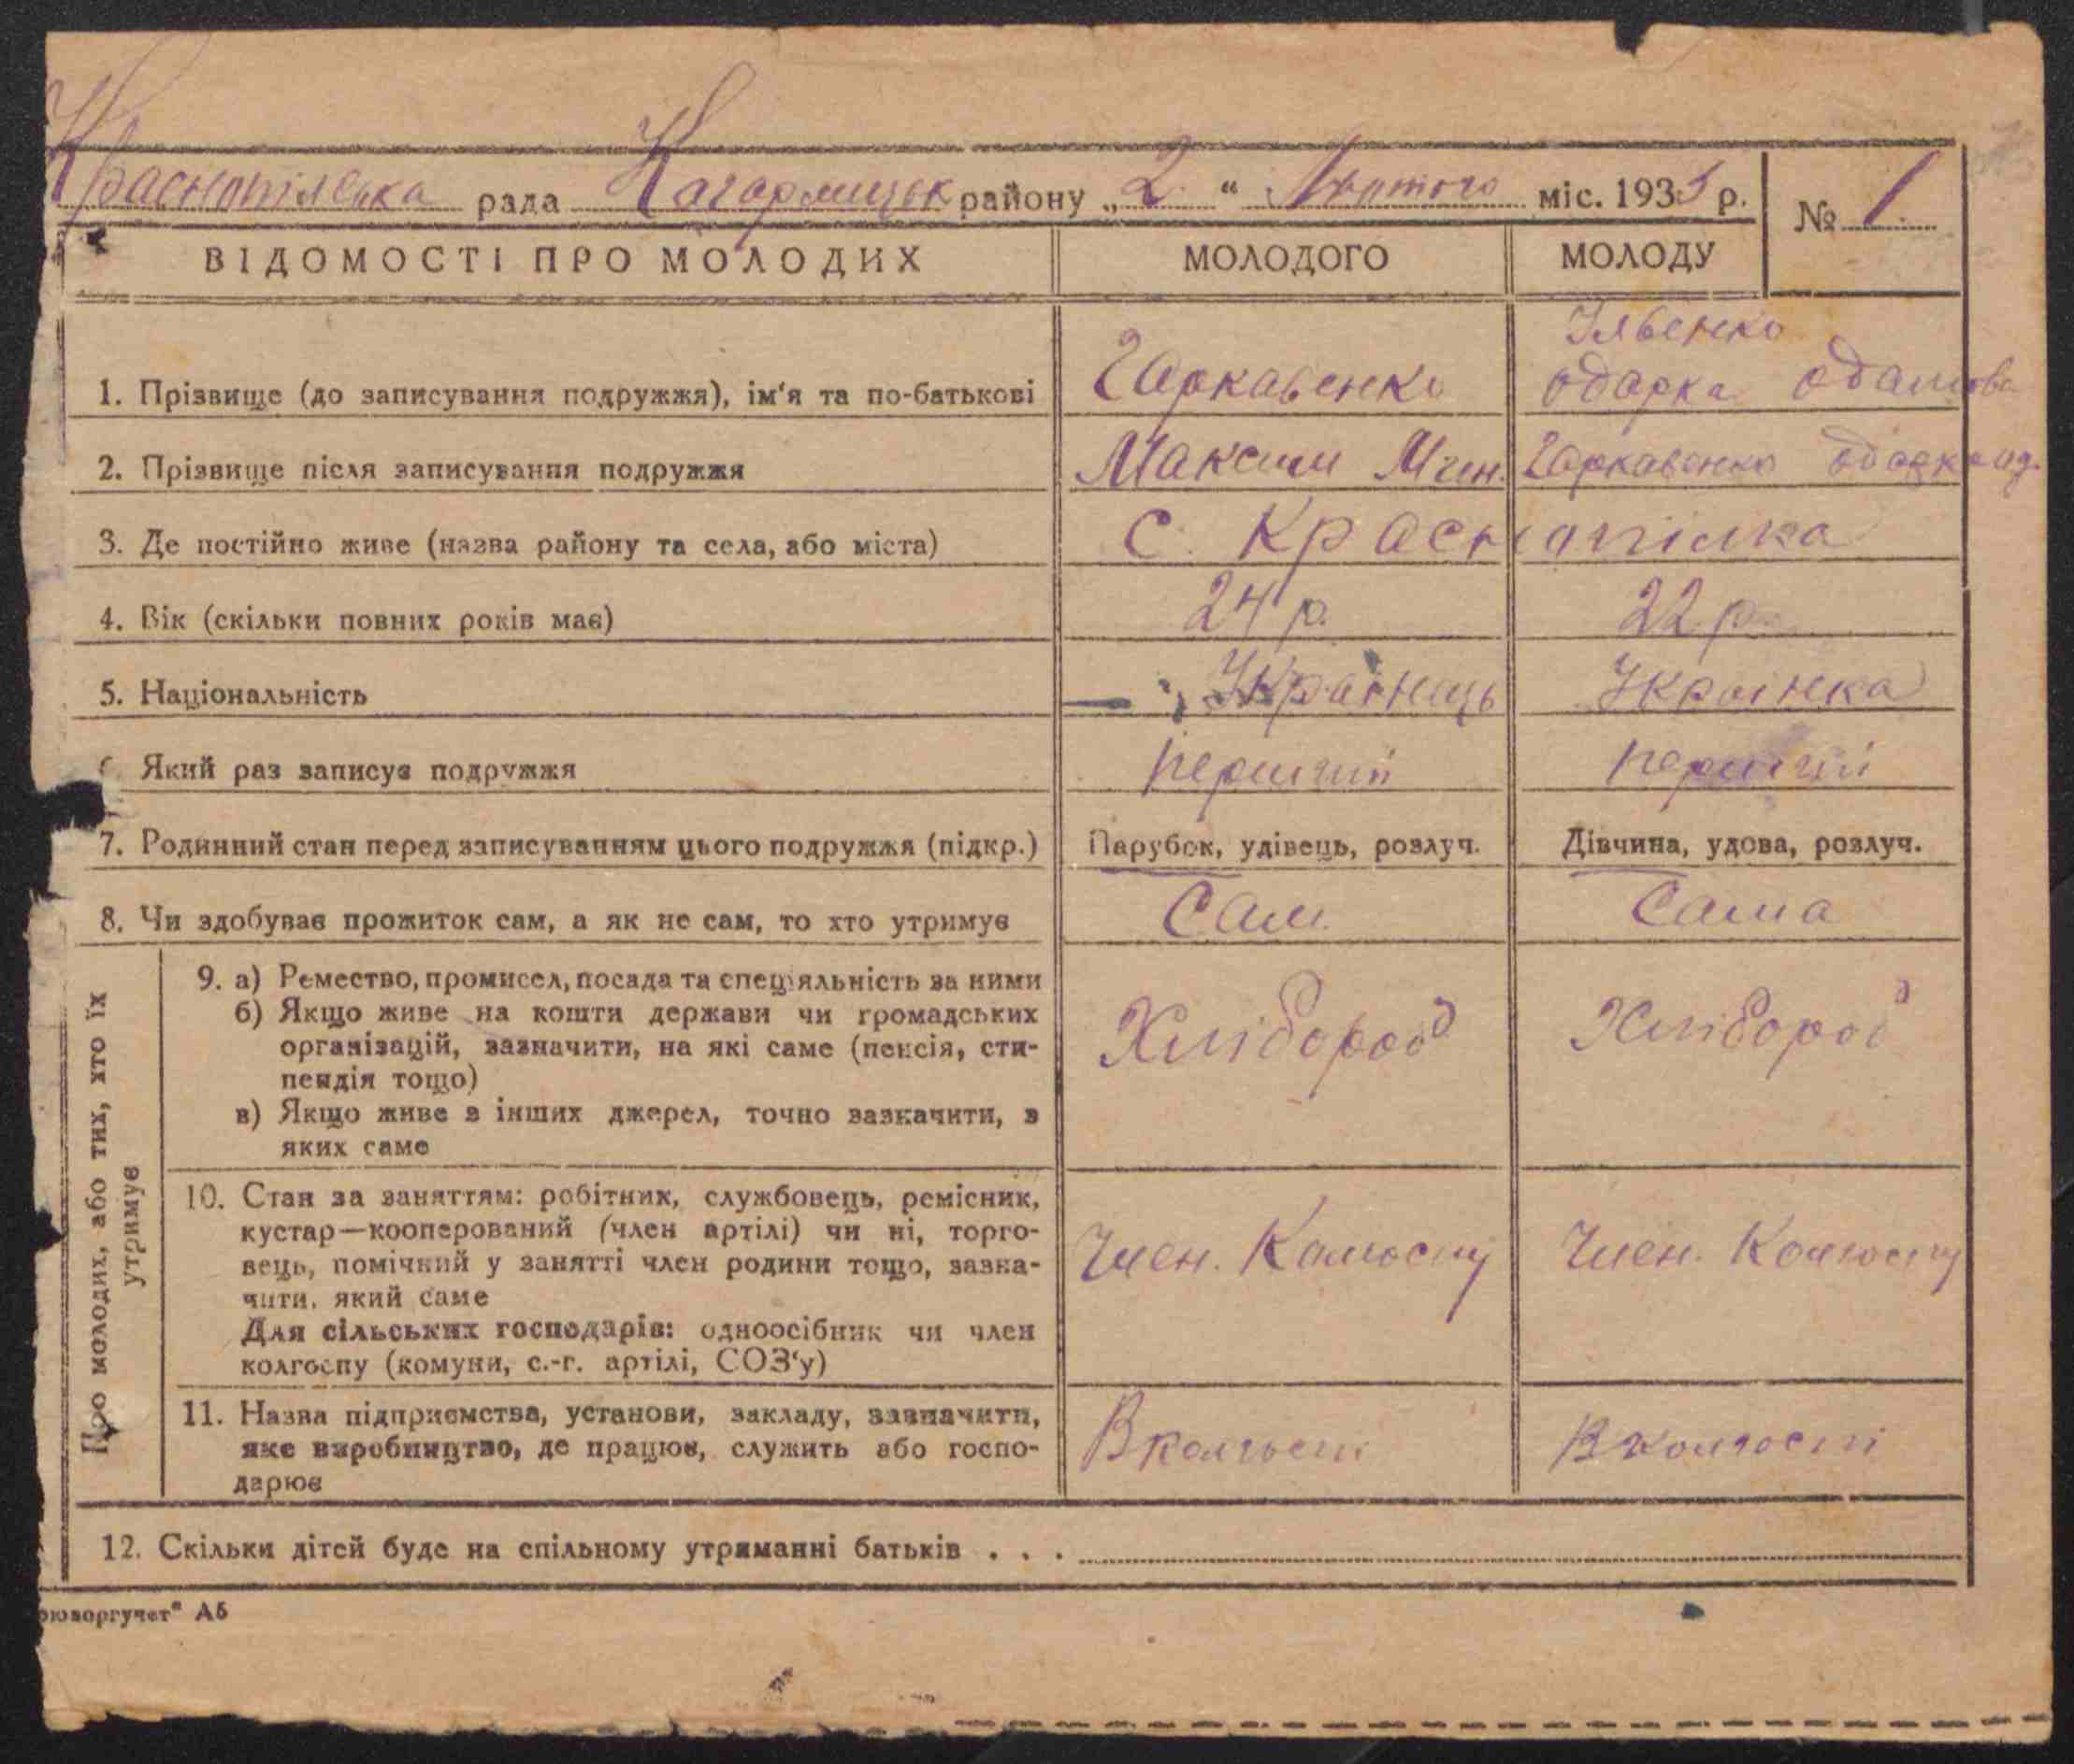 Краснопілська рада Кагарлицьк району „2“ Лютого міс. 1935 р. № 1
ВІДОМОСТІ ПРО МОЛОДИХ МОЛОДОГО МОЛОДУ
Ільенко
1. Прізвище (до записування подружжя), ім‘я та по-батькові Гаркавенко Одарка Одамова
2. Прізвище після записування подружжя Максим Мин. Гаркавенко Одарка Од.
3. Де постійно живе (назва району та села, або міста) С. Краснопілка
4. Вік (скільки повних років має) 24 р. 22 р.
5. Національність Українець Українка
Який раз записує подружжя перший перший
7. Родинний стан перед записуванням цього подружжя (підкр.) Парубок, удівець, розлуч. Дівчина, удова, розлуч.
8. Чи здобуває прожиток сам, а як не сам, то хто утримує Сам. Сама
Про молодих, або тих, хто їх
утримує
9. а) Ремество, промисел, посада та спеціяльність за ними
б) Якщо живе на кошти держави чи громадських Хлібороб Хлібороб
організацій, зазначити, на які саме (пенсія, сти-
пендія тощо)
в) Якщо живе з інших джерел, точно зазначити, з
яких саме
10. Стан за заняттям: робітник, службовець, ремісник,
кустар—кооперований (член артілі) чи ні, торго-
вець, помічний у занятті член родини тощо, зазна- Член. Колгоспу Член. Колгоспу
чити, який саме
Для сільських господарів: одноосібник чи член
колгоспу (комуни, с.-г. артілі, СОЗ‘у)
11. Назва підприємства, установи, закладу, зазначити,
яке виробництво, де працює, служить або госпо- В колгоспі В колгоспі
дарює
12. Скільки дітей буде на спільному утриманні батьків . . .
юворгучет" А5